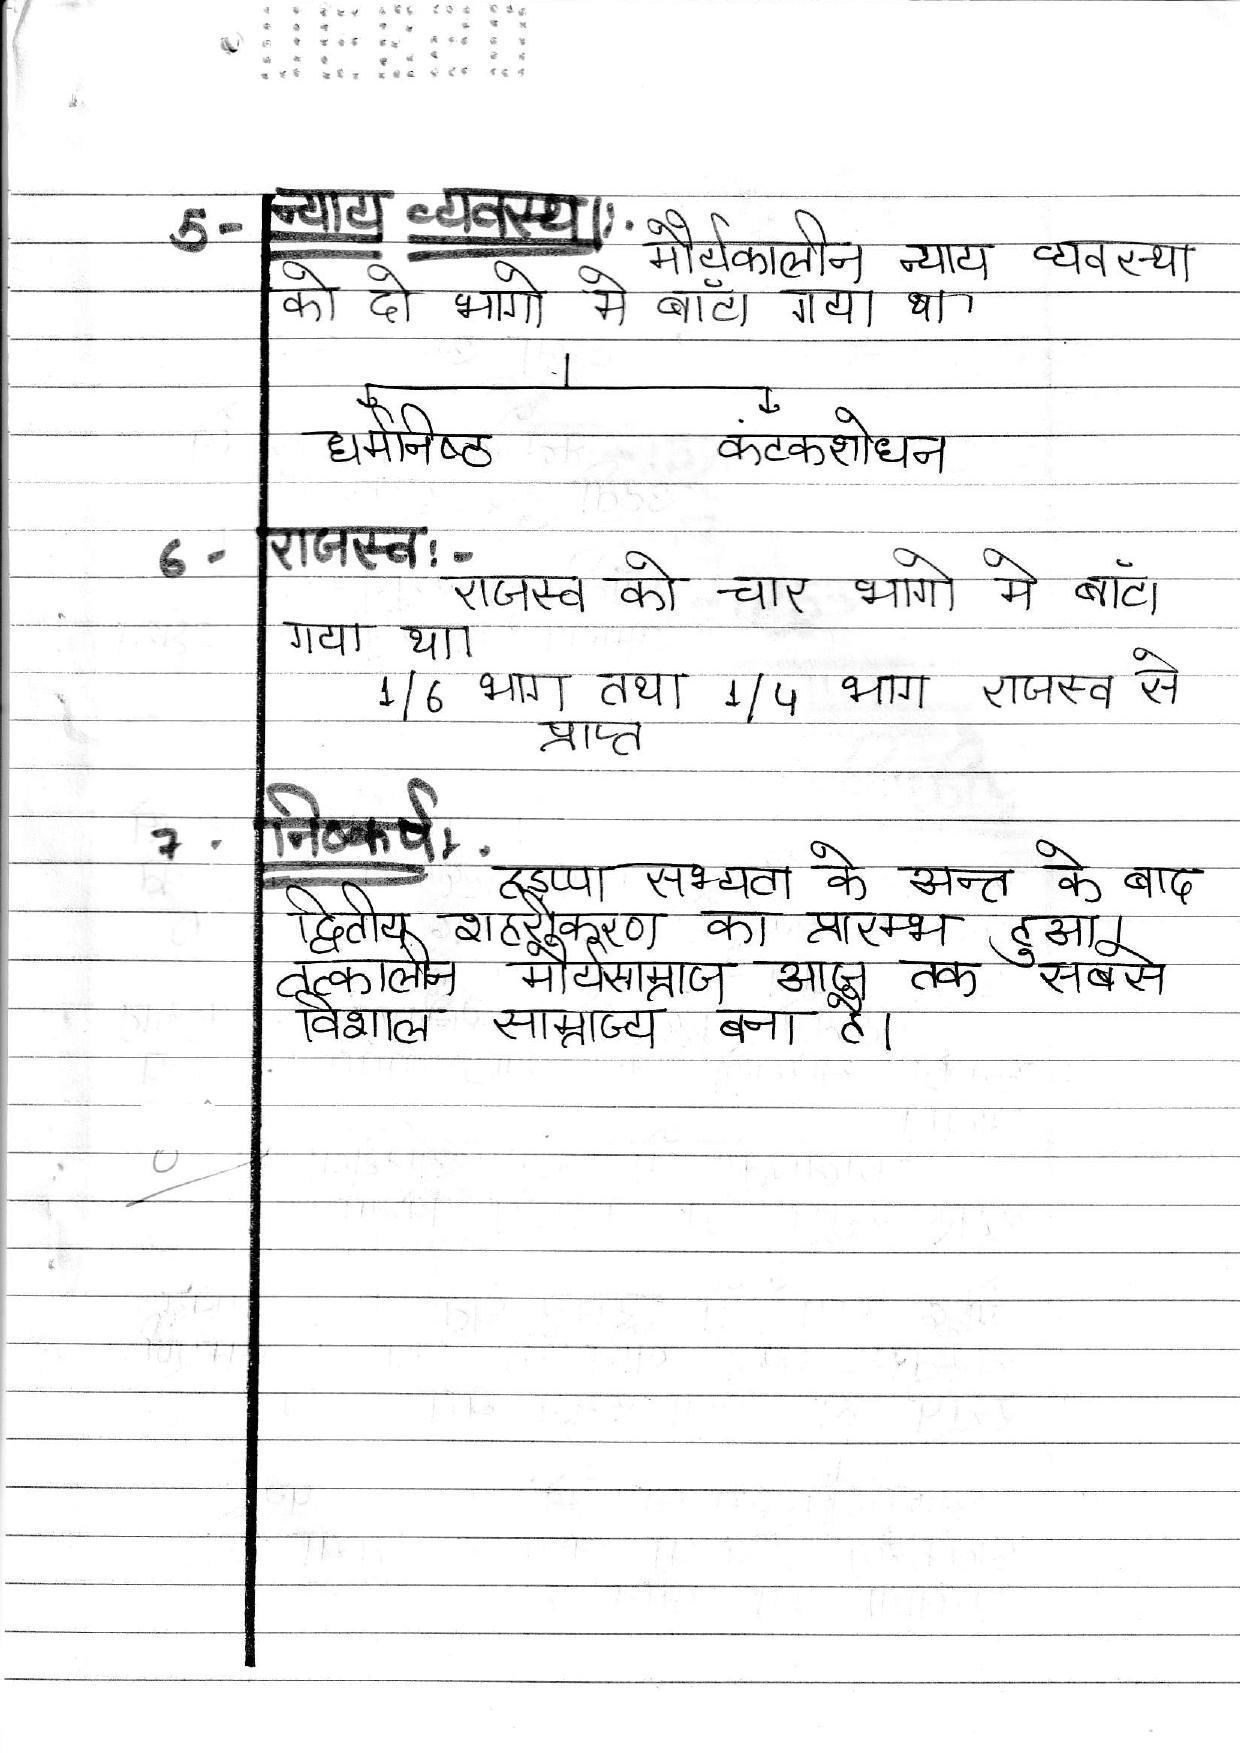 5- न्याय व्यवस्था:-
मौर्यकालीन न्याय व्यवस्था
को दो भागो मे बाँटा गया था।
धर्मनिष्ठ कंटकशोधन
6- राजस्व:-
राजस्व को चार भागो मे बाँटा
गया था।
1/6 भाग तथा 1/4 भाग राजस्व से
प्राप्त
7. निष्कर्ष:-
हड़प्पा सभ्यता के अन्त के बाद
द्वितीय शहरीकरण का प्रारम्भ हुआ।
तत्कालीन मौर्यसाम्राज आज तक सबसे
विशाल साम्राज्य बना है।